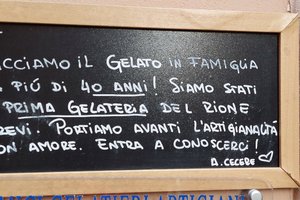 CCIAMO IL GELATO IN FAMIGLIA
PIÚ DI 40 ANNI! SIAMO STATI
PRIMA GELATERIA DEL RIONE
REVI. PORTIAMO AVANTI L'ARTIGIANALITÁ
ON AMORE. ENTRA A CONOSCERCI!
A. CECERE
GELATIERI ARTIGIANI